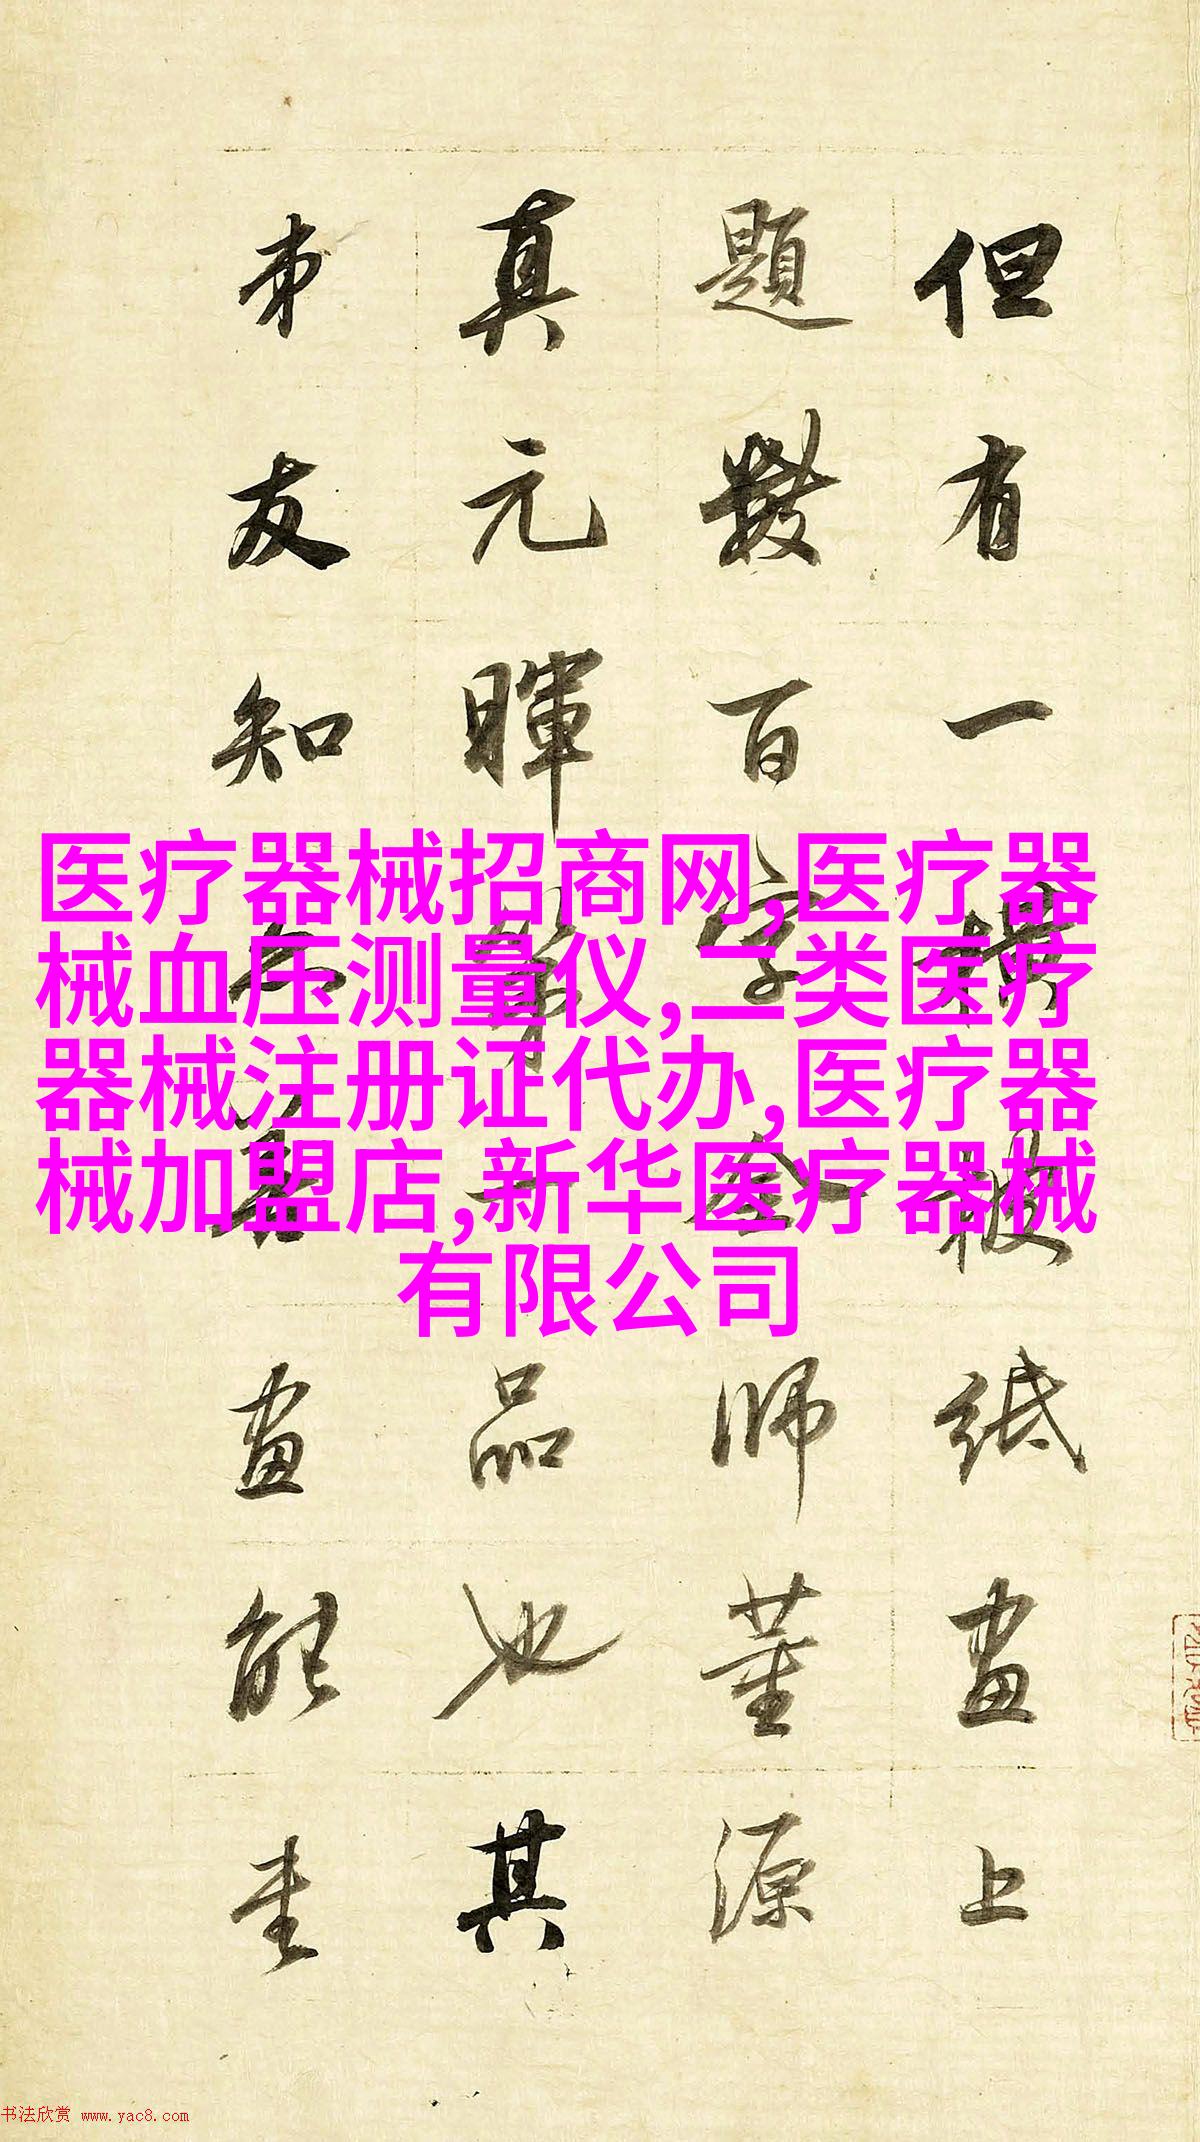 但有一横披纸画上
题数百字今师董源
真元晖第一品也其
本友知
画能
医疗器械招商网,医疗器
械血压测量仪,二类医疗
器械注册证代办,医疗器
械加盟店,新华医疗器械
有限公司
书法欣赏 www.yac8.com